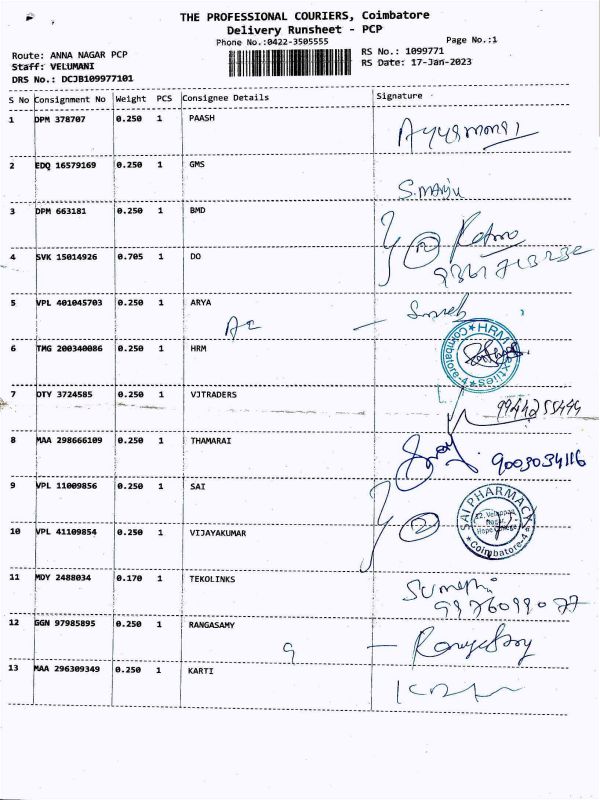 THE PROFESSIONAL COURIERS, Coimbatore
Delivery Runsheet - PCP
Phone No.:0422-3505555
Page No.:1
Route: ANNA NAGAR PCP
RS No.: 1099771
Staff: VELUMANI
RS Date: 17-Jan-2023
DRS No.: DCJB109977101
S No Consignment No Weight PCS Consignee Details Signature
1 DPM 378707 0.250 1 PAASH
2 EDQ 16579169 0.250 1 GMS
S.manju
3 DPM 663181 0.250 1 BMD
2
4 SVK 15014926 0.705 1 DO
5 VPL 401045703 0.250 1 ARYA
6 TMG 200340086 0.250 1 HRM
HRM Coimbatore-4
7 DTY 3724585 0.250 1 VJTRADERS
9944255444
8 MAA 298666109 0.250 1 THAMARAI
9003034116
9 VPL 11009856 0.250 1 SAI
SAI PHARMACY
Nagar,
Hope College
Coimbatore-4
10 VPL 41109854 0.250 1 VIJAYAKUMAR
2
11 MDY 2488034 0.170 1 TEKOLINKS
9976099077
12 GGN 97985895 0.250 1 RANGASAMY
9
13 MAA 296309349 0.250 1 KARTI